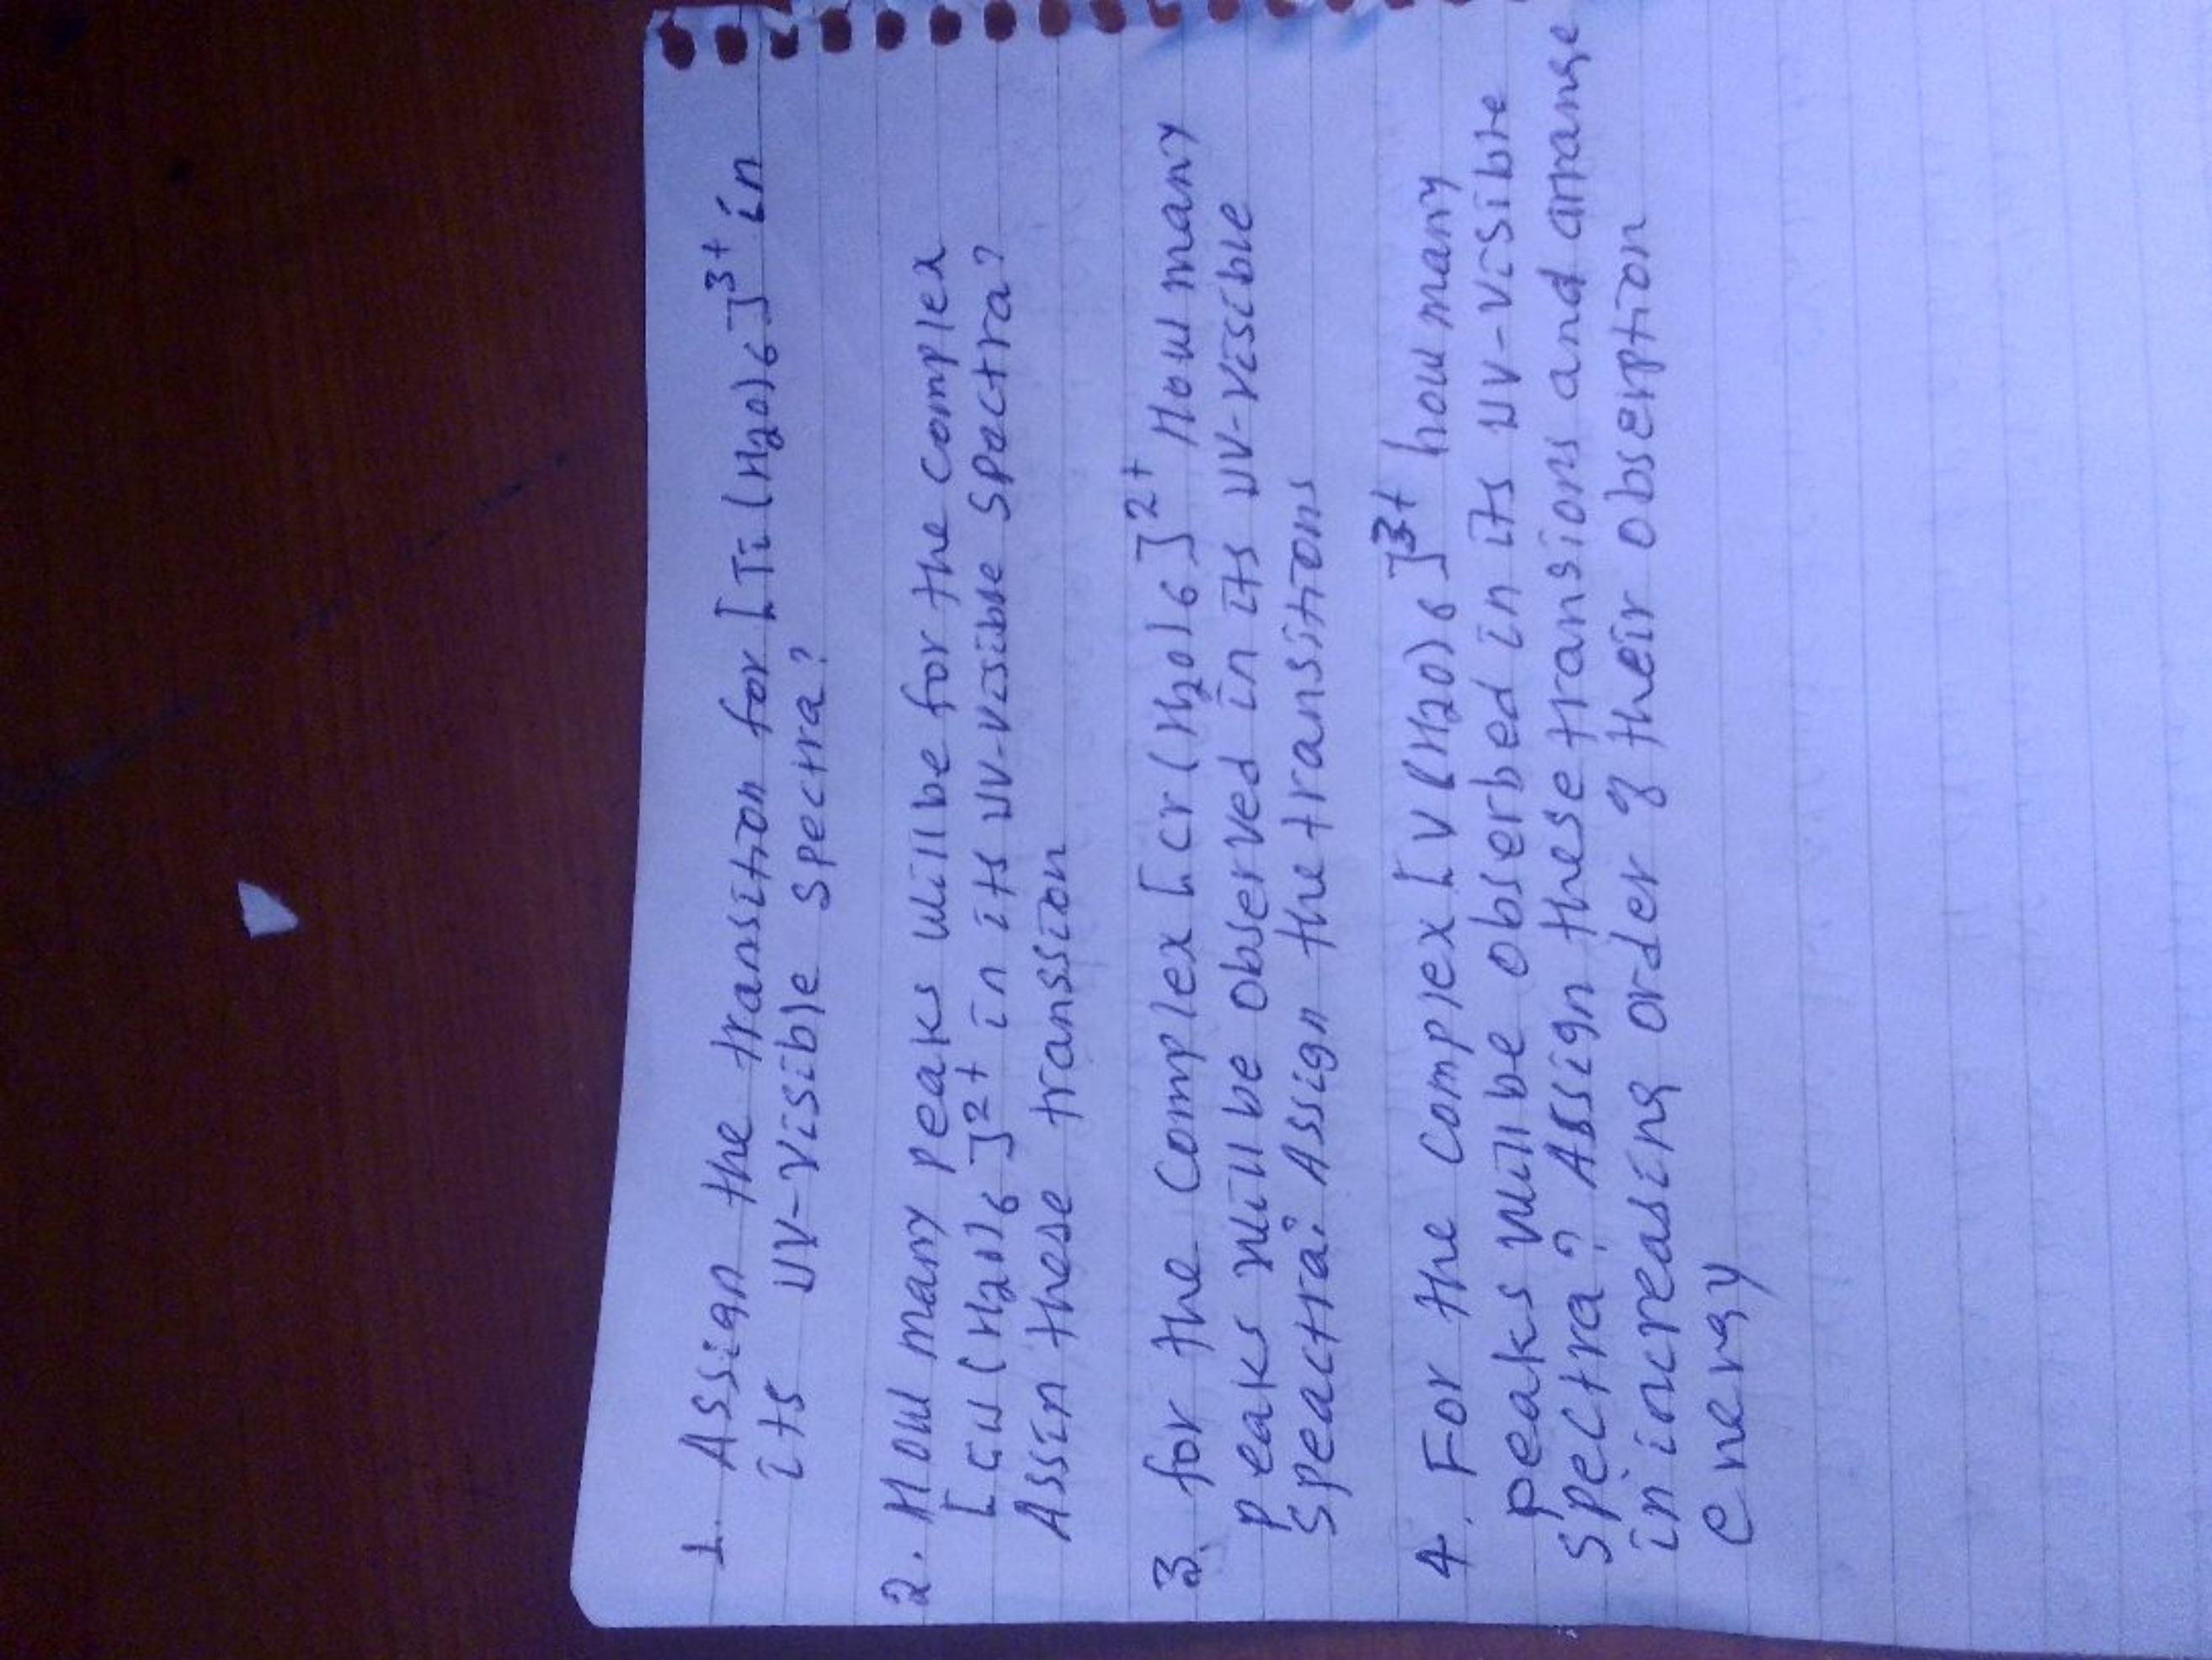 1. Assign the transition for [Ti(H2O)6]3+ in
its UV-Visible Spectra?
2. How many peaks will be for the complex
[Cu(H2O)6]2+ in its UV-visible Spactra?
Assin these transsion
3. for the Complex [Cr(H2O)6]2+ How many
peaks will be observed in its UV-visible
Speactra? Assign the transitions
4. For the complex [V(H2O)6]3+ how many
peaks will be obserbed in its UV-visible
Spectra? Assign these transions and arrange
in increasing order of their obserption
energy